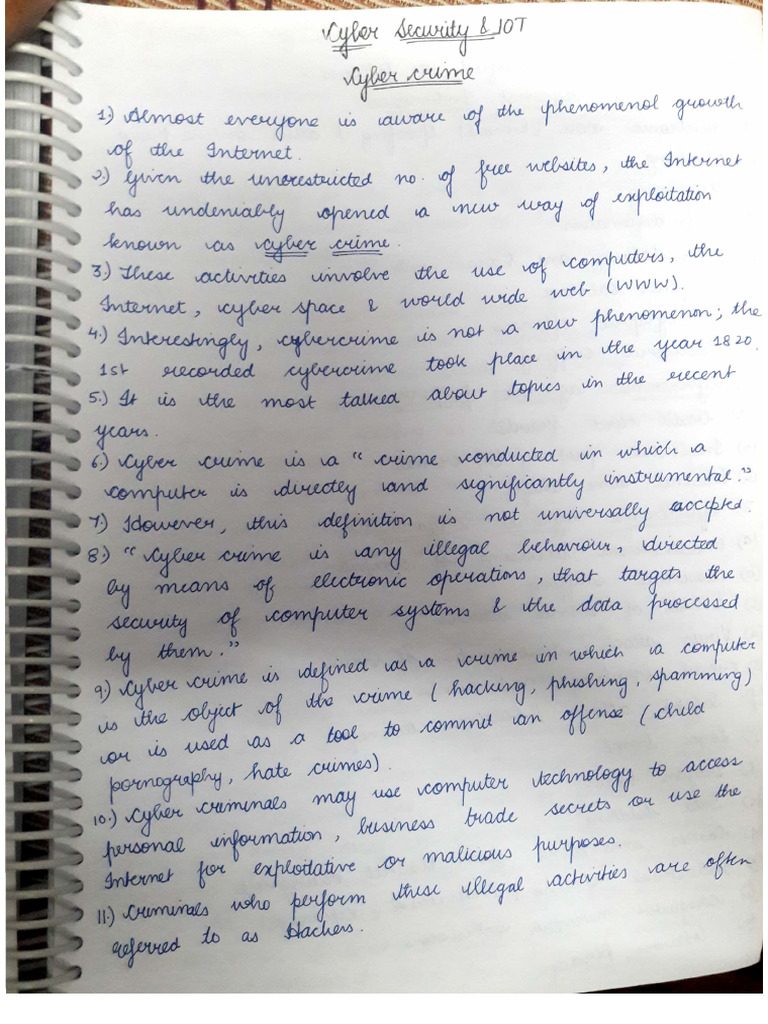 Cyber Security & IOT
Cyber crime
1.) Almost everyone is aware of the phenomenol growth
of the Internet.
2.) Given the unrestricted no. of free websites, the Internet
has undeniably opened a new way of exploitation
known as cyber crime.
3.) These activities involve the use of computers, the
Internet, cyber space & world wide web (WWW).
4.) Interestingly, cybercrime is not a new phenomenon; the
1st recorded cybercrime took place in the year 1820.
5.) It is the most talked about topics in the recent
years.
6.) Cyber crime is a " crime conducted in which a
computer is directly and significantly instrumental."
7.) However, this definition is not universally accepted.
8.) " Cyber crime is any illegal behaviour, directed
by means of electronic operations, that targets the
security of computer systems & the data processed
by them."
9.) Cyber crime is defined as a crime in which a computer
is the object of the crime (hacking, phishing, spamming)
or is used as a tool to commit an offense (child
pornography, hate crimes).
10.) Cyber criminals may use computer technology to access
personal information, business trade secrets or use the
Internet for exploitative or malicious purposes.
11.) Criminals who perform these illegal activities are often
referred to as Hackers.